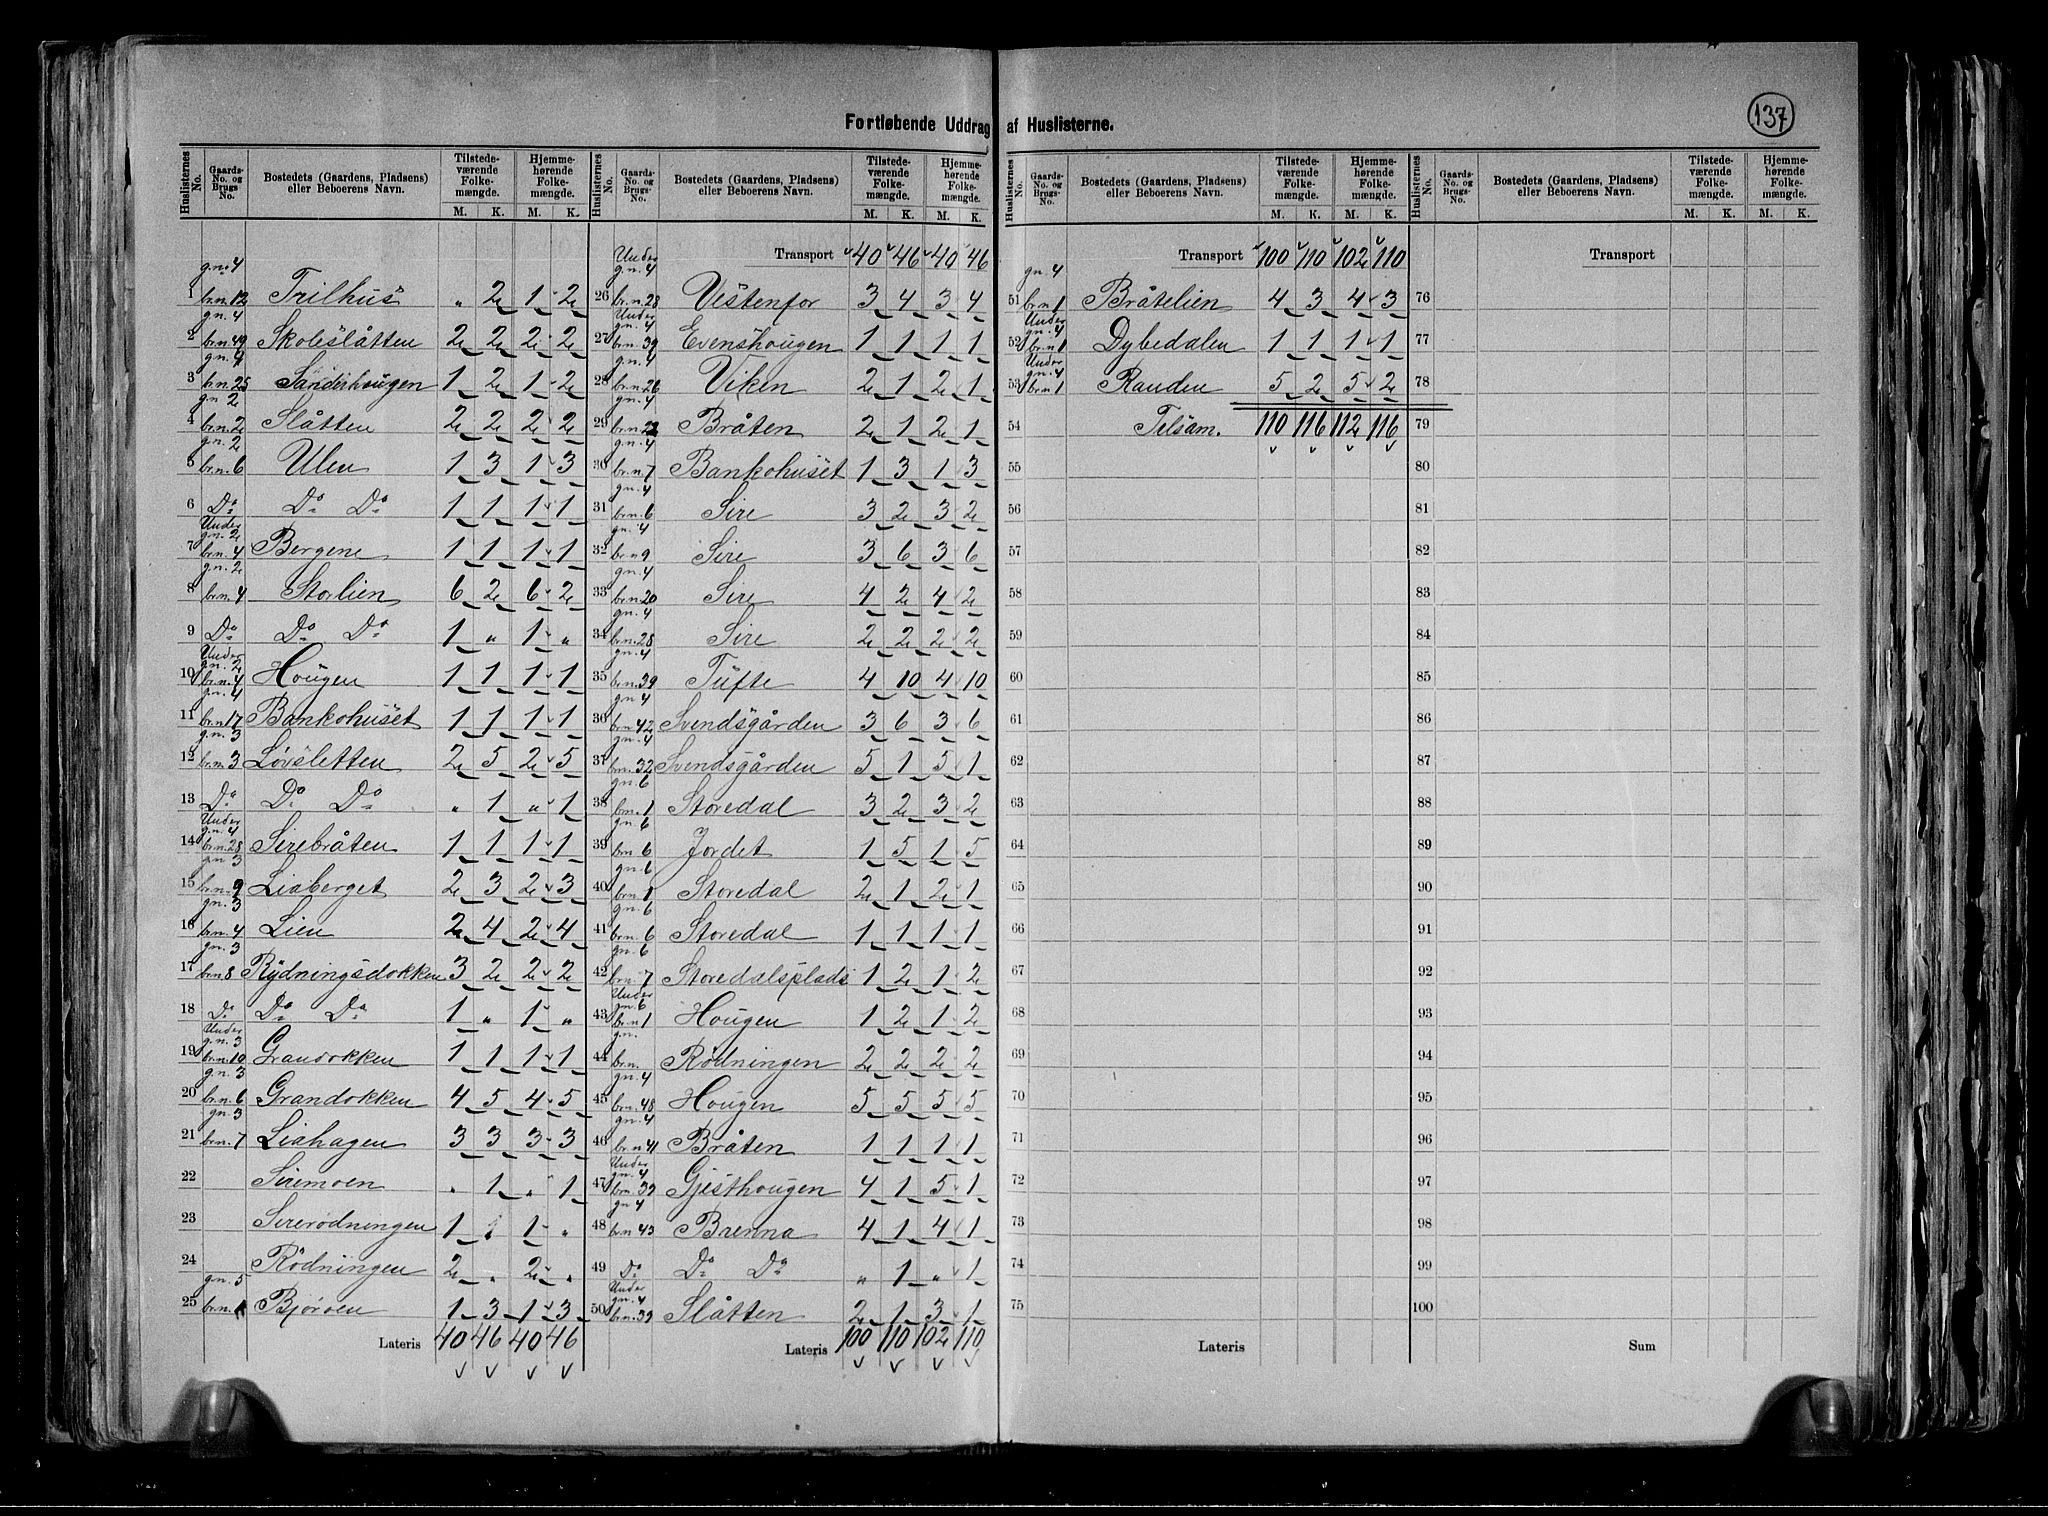 Fortløbende Uddrag af Huslisterne.
137
Huslisternes No. Gaards-No. og Brugs-No. Bostedets (Gaardens, Pladsens) eller Beboerens Navn. Tilstedeværende Folkemængde. M. K. Hjemmehørende Folkemængde. M. K.
1 gn. 4 br.n. 12 Trilhus „ 2 1 2
2 gn. 4 br.n. 49 Skoleslåtten 2 2 2 2
3 gn. 4 br.n. 25 Sönderhougen 1 2 1 2
4 gn. 2 br.n. 2 Slåtten 2 2 2 2
5 gn. 2 br.n. 6 Ulen 1 3 1 3
6 Do Do Do 1 1 1 1
7 Under gn. 2 br.n. 4 Bergene 1 1 1 1
8 gn. 2 br.n. 4 Storlien 6 2 6 2
9 Do Do Do 1 „ 1 „
10 Under gn. 2 br.n. 4 Hougen 1 1 1 1
11 gn. 4 br.n. 17 Bankohuset 1 1 1 1
12 gn. 3 br.n. 3 Løvsletten 2 5 2 5
13 Do Do Do „ 1 „ 1
14 Under gn. 4 br.n. 28 Sirebråten 1 1 1 1
15 gn. 3 br.n. 9 Liaberget 2 3 2 3
16 gn. 3 br.n. 4 Lien 2 4 2 4
17 gn. 3 br.n. 8 Rydningsdokken 3 2 2 2
18 Do Do Do 1 „ 1 „
19 Under gn. 3 br.n. 10 Grandokken 1 1 1 1
20 gn. 3 br.n. 6 Grandokken 4 5 4 5
21 gn. 3 br.n. 7 Liahagen 3 3 3 3
22 Siremoen „ 1 „ 1
23 Sirerödningen 1 „ 1 „
24 Rödningen 2 „ 2 „
25 gn. 5 br.n. 1 Bjøroen 1 3 1 3
Lateris 40 46 40 46
Huslisternes No. Gaards-No. og Brugs-No. Bostedets (Gaardens, Pladsens) eller Beboerens Navn. Tilstedeværende Folkemængde. M. K. Hjemmehørende Folkemængde. M. K.
Transport 40 46 40 46
26 Under gn. 4 br.n. 28 Vestenfor 3 4 3 4
27 Under gn. 4 br.n. 39 Evenshougen 1 1 1 1
28 gn. 4 br.n. 26 Viken 2 1 2 1
29 gn. 4 br.n. 22 Bråten 2 1 2 1
30 gn. 4 br.n. 7 Bankohuset 1 3 1 3
31 gn. 4 br.n. 6 Sire 3 2 3 2
32 gn. 4 br.n. 9 Sire 3 6 3 6
33 gn. 4 br.n. 20 Sire 4 2 4 2
34 gn. 4 br.n. 28 Sire 2 2 2 2
35 gn. 4 br.n. 39 Tüfte 4 10 4 10
36 gn. 4 br.n. 42 Svendsgården 3 6 3 6
37 gn. 4 br.n. 32 Svendsgården 5 1 5 1
38 gn. 6 br.n. 1 Storedal 3 2 3 2
39 gn. 6 br.n. 6 Jordet 1 5 1 5
40 gn. 6 br.n. 1 Storedal 2 1 2 1
41 gn. 6 br.n. 6 Storedal 1 1 1 1
42 gn. 6 br.n. 7 Storedalsplads 1 2 1 2
43 Under gn. 6 br.n. 1 Hougen 1 2 1 2
44 gn. br.n. Rödningen 2 2 2 2
45 gn. 4 br.n. 48 Hougen 5 5 5 5
46 gn. 4 br.n. 41 Bråten 1 1 1 1
47 Under gn. 4 br.n. 39 Gjesthougen 4 1 5 1
48 gn. 4 br.n. 43 Brenna 4 1 4 1
49 Do Do Do „ 1 „ 1
50 Under gn. 4 br.n. 39 Slåtten 2 1 3 1
Lateris 100 110 102 110
Huslisternes No. Gaards-No. og Brugs-No. Bostedets (Gaardens, Pladsens) eller Beboerens Navn. Tilstedeværende Folkemængde. M. K. Hjemmehørende Folkemængde. M. K.
Transport 100 110 102 110
51 gn. 4 br.n. 1 Bråtelien 4 3 4 3
52 Under gn. 4 br.n. 1 Dybedalen 1 1 1 1
53 Under gn. 4 br.n. 1 Rauden 5 2 5 2
54 Tilsam. 110 116 112 116
55
56
57
58
59
60
61
62
63
64
65
66
67
68
69
70
71
72
73
74
75
Lateris
Huslisternes No. Gaards-No. og Brugs-No. Bostedets (Gaardens, Pladsens) eller Beboerens Navn. Tilstedeværende Folkemængde. M. K. Hjemmehørende Folkemængde. M. K.
Transport
76
77
78
79
80
81
82
83
84
85
86
87
88
89
90
91
92
93
94
95
96
97
98
99
100
Sum